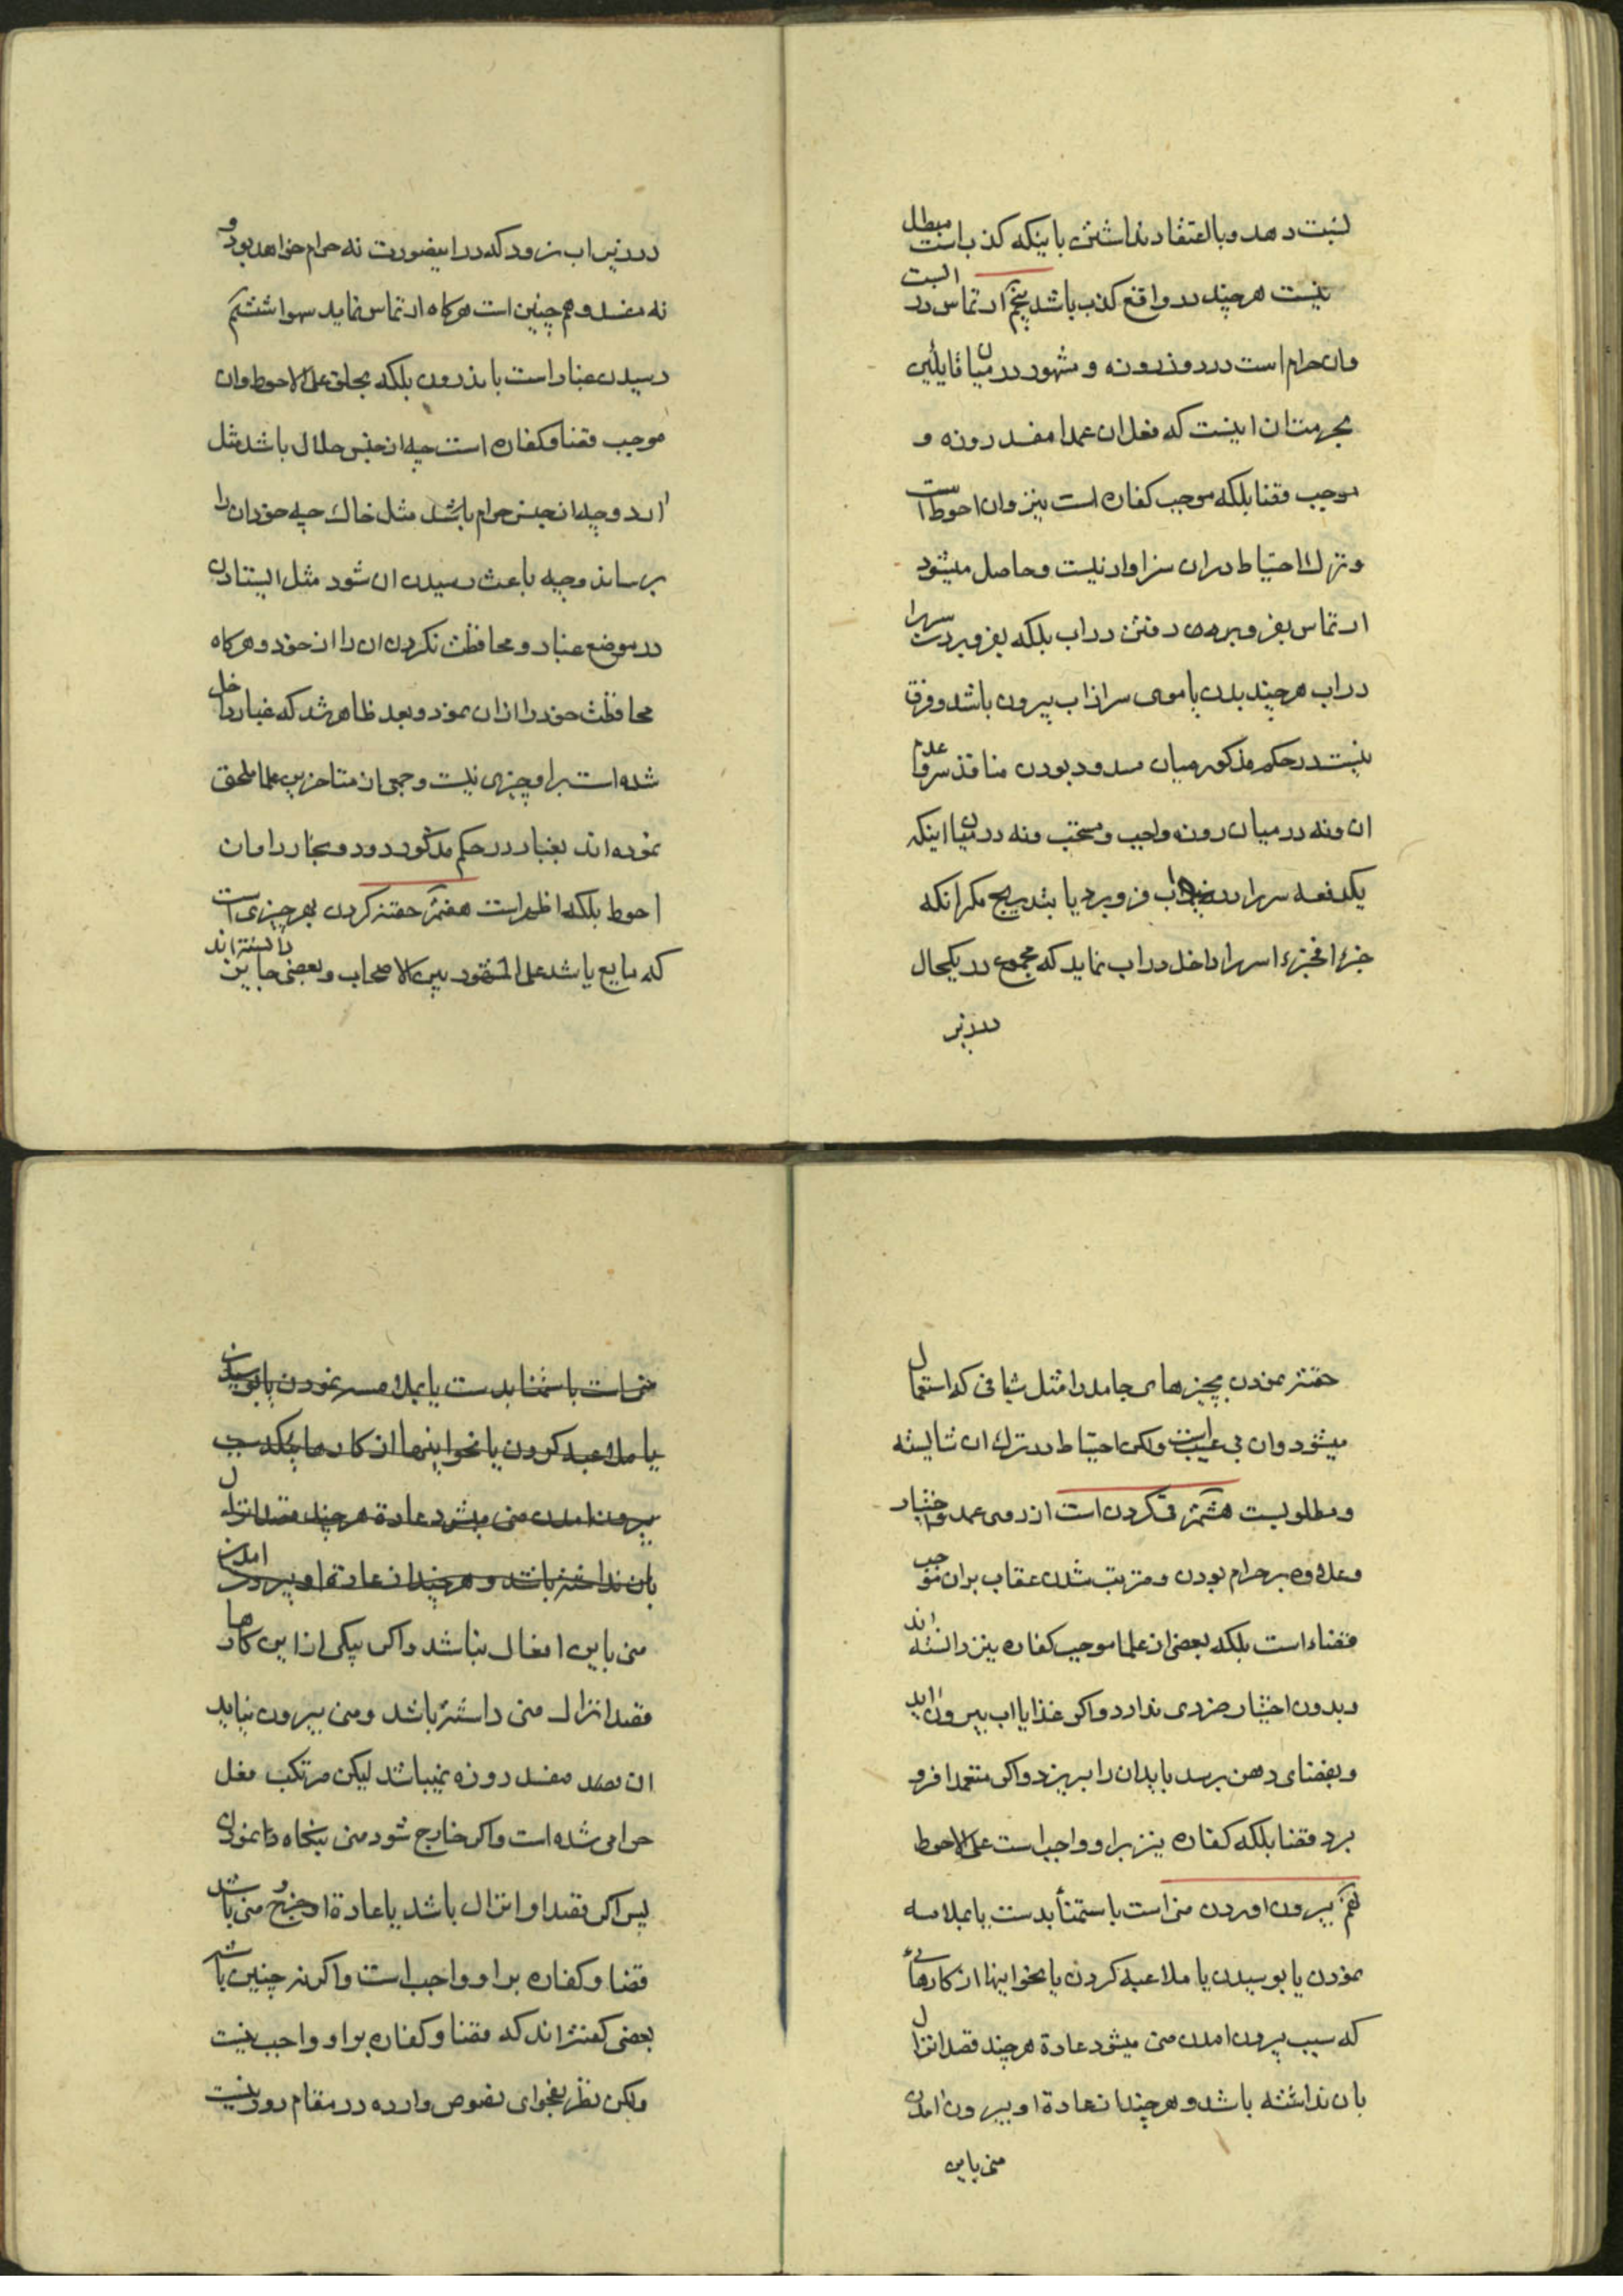 نسبت دهد و با اعتقاد نداشتن باینکه کذب است مبطل
نیست هر چند در واقع کذب باشد پنجم ارتماس در آبست
وان حرام است در روز روزه و مشهور در میان قایلین
بحرمت ان اینست که فعل ان عمدا مفسد روزه و
موجب قضا بلکه موجب کفاره است نیز وان احوط است
و ترک احتیاط دران سزاوار نیست و حاصل میشود
ارتماس بفرو بردن رفتن در اب بلکه بفرو بردن سر را
در اب هر چند بدن با موی سر از اب بیرون باشد و فرق
نیست در حکم مذکور میان مسدود بودن منافذ سر و عدم
ان و نه در میان روزه واجب و مستحب و نه در میان اینکه
یکدفعه سر را در اب فرو برد یا بتدریج مکر انکه
جزء فجزء سر را داخل در اب نماید که مجموع در یکحال
در زیر
در زیر اب نرود که در اینصورت نه حرام خواهد بود و
نه مفسد و هم چنین است هر کاه ارتماس نماید سهوا ششم
رسیدن غبار است باندرون بلکه بحلق علی الاحوط وان
موجب قضا و کفاره است چه از جنس حلال باشد مثل
ارد و چه از جنس حرام باشد مثل خاک چه خود ان را
برساند و چه باعث رسیدن ان شود مثل ایستادن
در موضع غبار و محافظت نکردن ان را از خود و هر کاه
محافظت خود را ازان نمود و بعد ظاهر شد که غبار داخل
شده است بر او چیزی نیست و جمعی از متاخرین علما ملحق
نموده اند بغبار در حکم مذکور دود و بخار را وان
احوط بلکه اظهر است هفتم حقنه کردن بهر چیزی است
که مایع باشد علی المشهور بین الاصحاب و بعضی جایز دانسته اند
حقنه نمودن بچیزهای جامد را مثل شیافی که استعمال
میشود وان بی عیب است ولکن احتیاط در ترک ان شایسته
و مطلوبست هشتم قی کردن است از روی عمد و اختیار
و علاوه بر حرام بودن و مترتب شدن عقاب بران موجب
قضاء است بلکه بعضی از علما موجب کفاره نیز دانسته اند
و بدون اختیار ضرری ندارد و اکر غذا یا اب بیرون اید
و بفضای دهن برسد باید ان را بریزد و اکر متعمدا فرو
برد قضا بلکه کفاره نیز بر او واجب است علی الاحوط
نهم بیرون اوردن منی است باستمنأ بدست یا بملامسه
نمودن یا بوسیدن یا ملاعبه کردن یا بنحو اینها از کارهائی
که سبب بیرون امدن منی میشود عادة هر چند قصد انزال
بان نداشته باشد و هر چند از عادة او بیرون امدن
منی باین
منی است باستمنا بدست یا بملامسه نمودن یا بوسیدن
یا ملاعبه کردن یا بنحو اینها از کارها که سبب
بیرون امدن منی میشود عادة هر چند قصد انزال
بان نداشته باشد و هر چند از عادة او بیرون امدن
منی باین افعال نباشد و اکر بیکی از این کارها
قصد انزال منی داشته باشد و منی بیرون نیاید
ان قصد مفسد روزه نمیباشد لیکن مرتکب فعل
حرامی شده است و اکر خارج شود منی بنکاه نمودن
پس اکر قصد او انزال باشد یا عادة او خروج منی باشد
قضا و کفاره بر او واجب است و اکر نه چنین باشد
بعضی کفته اند که قضا و کفاره بر او واجب نیست
ولکن نظر بفحوای نصوص وارده در مقام دور نیست